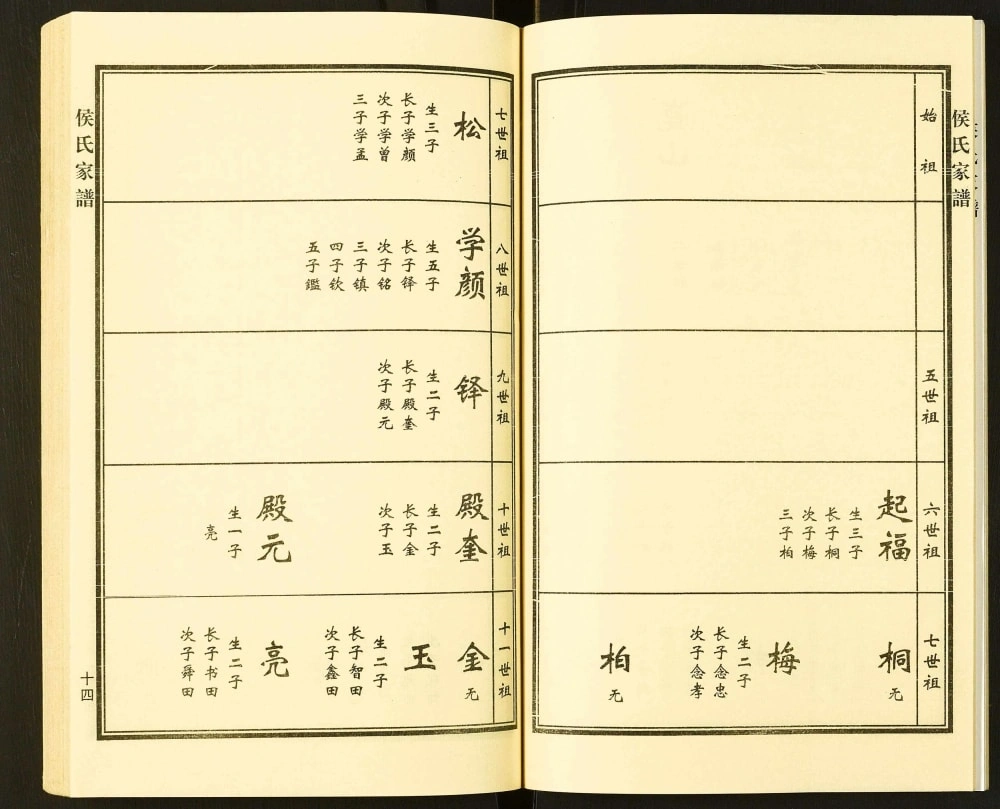 侯氏家譜
始祖
五世祖
六世祖
起福
生三子
长子桐
次子梅
三子柏
七世祖
桐
无
梅
生二子
长子念忠
次子念孝
柏
无
七世祖
松
生三子
长子学颜
次子学曾
三子学孟
八世祖
学颜
生五子
长子铎
次子铭
三子镇
四子钦
五子鑑
九世祖
铎
生二子
长子殿奎
次子殿元
十世祖
殿奎
生二子
长子金
次子玉
殿元
生一子
亮
十一世祖
金
无
玉
生二子
长子智田
次子鑫田
亮
生二子
长子书田
次子舜田
侯氏家譜
十四